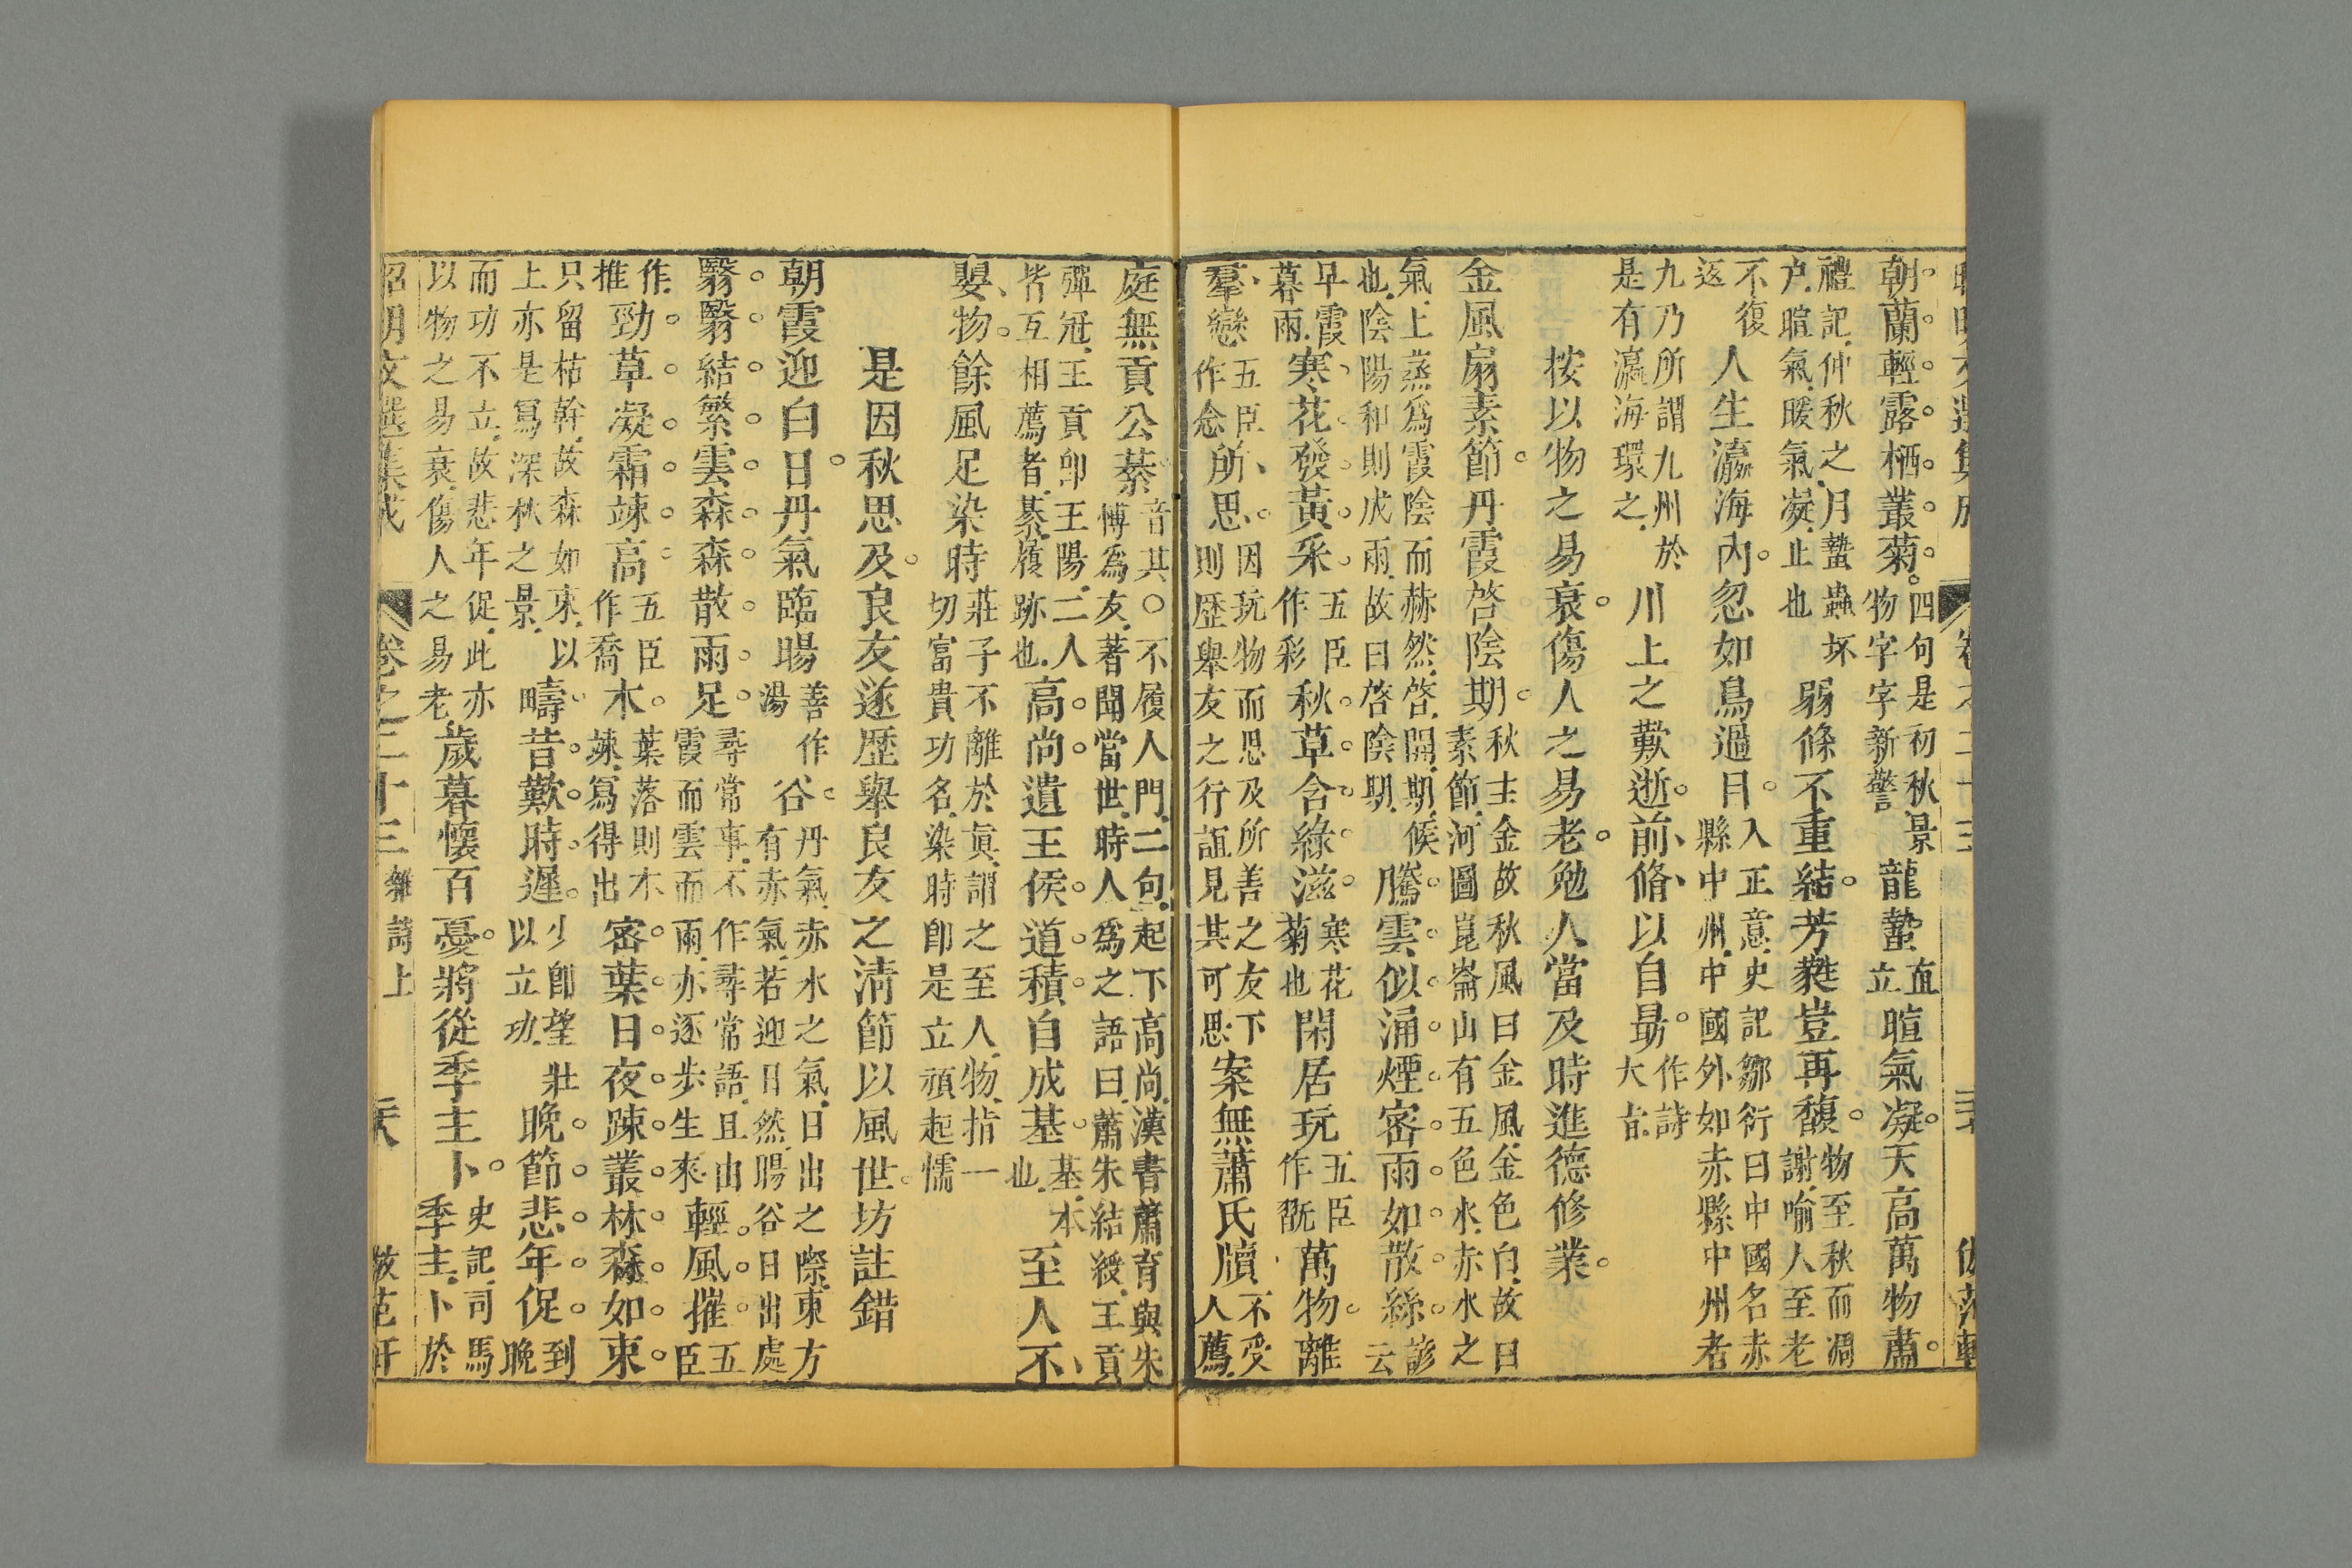 朝蘭輕露栖叢菊。四句是初秋景物字字新警龍蟄直立暄氣凝。天高萬物蕭。
禮記.仲秋之月蟄蟲坏戶.暄氣.暖氣.凝.止也弱條不重結。芳蕤豈再馥。物至秋而凋謝.喻人至老
不復返人生瀛海內。忽如鳥過目。入正意.史記鄒衍曰中國名赤縣中州.中國外如赤縣中州者
九乃所謂九州於是有瀛海環之.川上之歎逝。前脩以自勗。作詩大旨.
按以物之易衰。傷人之易老。勉人當及時進德修業。
金風扇素節。丹霞啓陰期。秋主金故秋風曰金風.金色白.故曰素節.河圖崑崙山有五色水.赤水之
氣.上蒸爲霞陰而赫然.啓.開.期.候也.陰陽和則成雨.故曰啓陰期.騰雲似涌煙。密雨如散絲。諺云
早霞暮雨.寒花發黃采五臣作彩秋草含綠滋。寒花菊也閑居玩五臣作翫萬物。離
羣戀五臣作念所思。因玩物而思及所善之友下則歷舉友之行誼見其可思案無蕭氏牘不受人薦.
庭無貢公綦音其○不履人門.二句.起下高尚.漢書蕭育與朱博爲友.著聞當世.時人爲之語曰.蕭朱結綬.王貢
彈冠.王貢卽王陽.二人皆互相薦者.綦.履跡也.高尚遺王侯。道積自成基。基.本也.至人不
嬰物。餘風足染時莊子不離於眞.謂之至人.物.指一切富貴功名.染時卽是立頑起懦
是因秋思及。良友遂歷舉良友之淸節以風世。坊註錯
朝霞迎白日。丹氣臨暘善作湯谷。丹氣.赤水之氣.日出之際.東方有赤氣.若迎日然.暘谷日出處
翳翳結繁雲。森森散雨足。尋常事.不作尋常語.且由霞而雲而雨.亦逐步生來.輕風摧五臣
作推.勁草。凝霜竦高五臣作喬木。葉落則木竦.爲得出密葉日夜疎。叢林森如束。
只留枯幹.故森如束.以上亦是寫深秋之景.疇昔歎時遲。少卽望壯以立功.晚節悲年促。到晚
而功不立.故悲年促.此亦以物之易衰.傷人之易老.歲暮懷百憂。將從季主卜。史記.司馬季主.卜於
昭明文選集成 卷之二十三 雜詩上